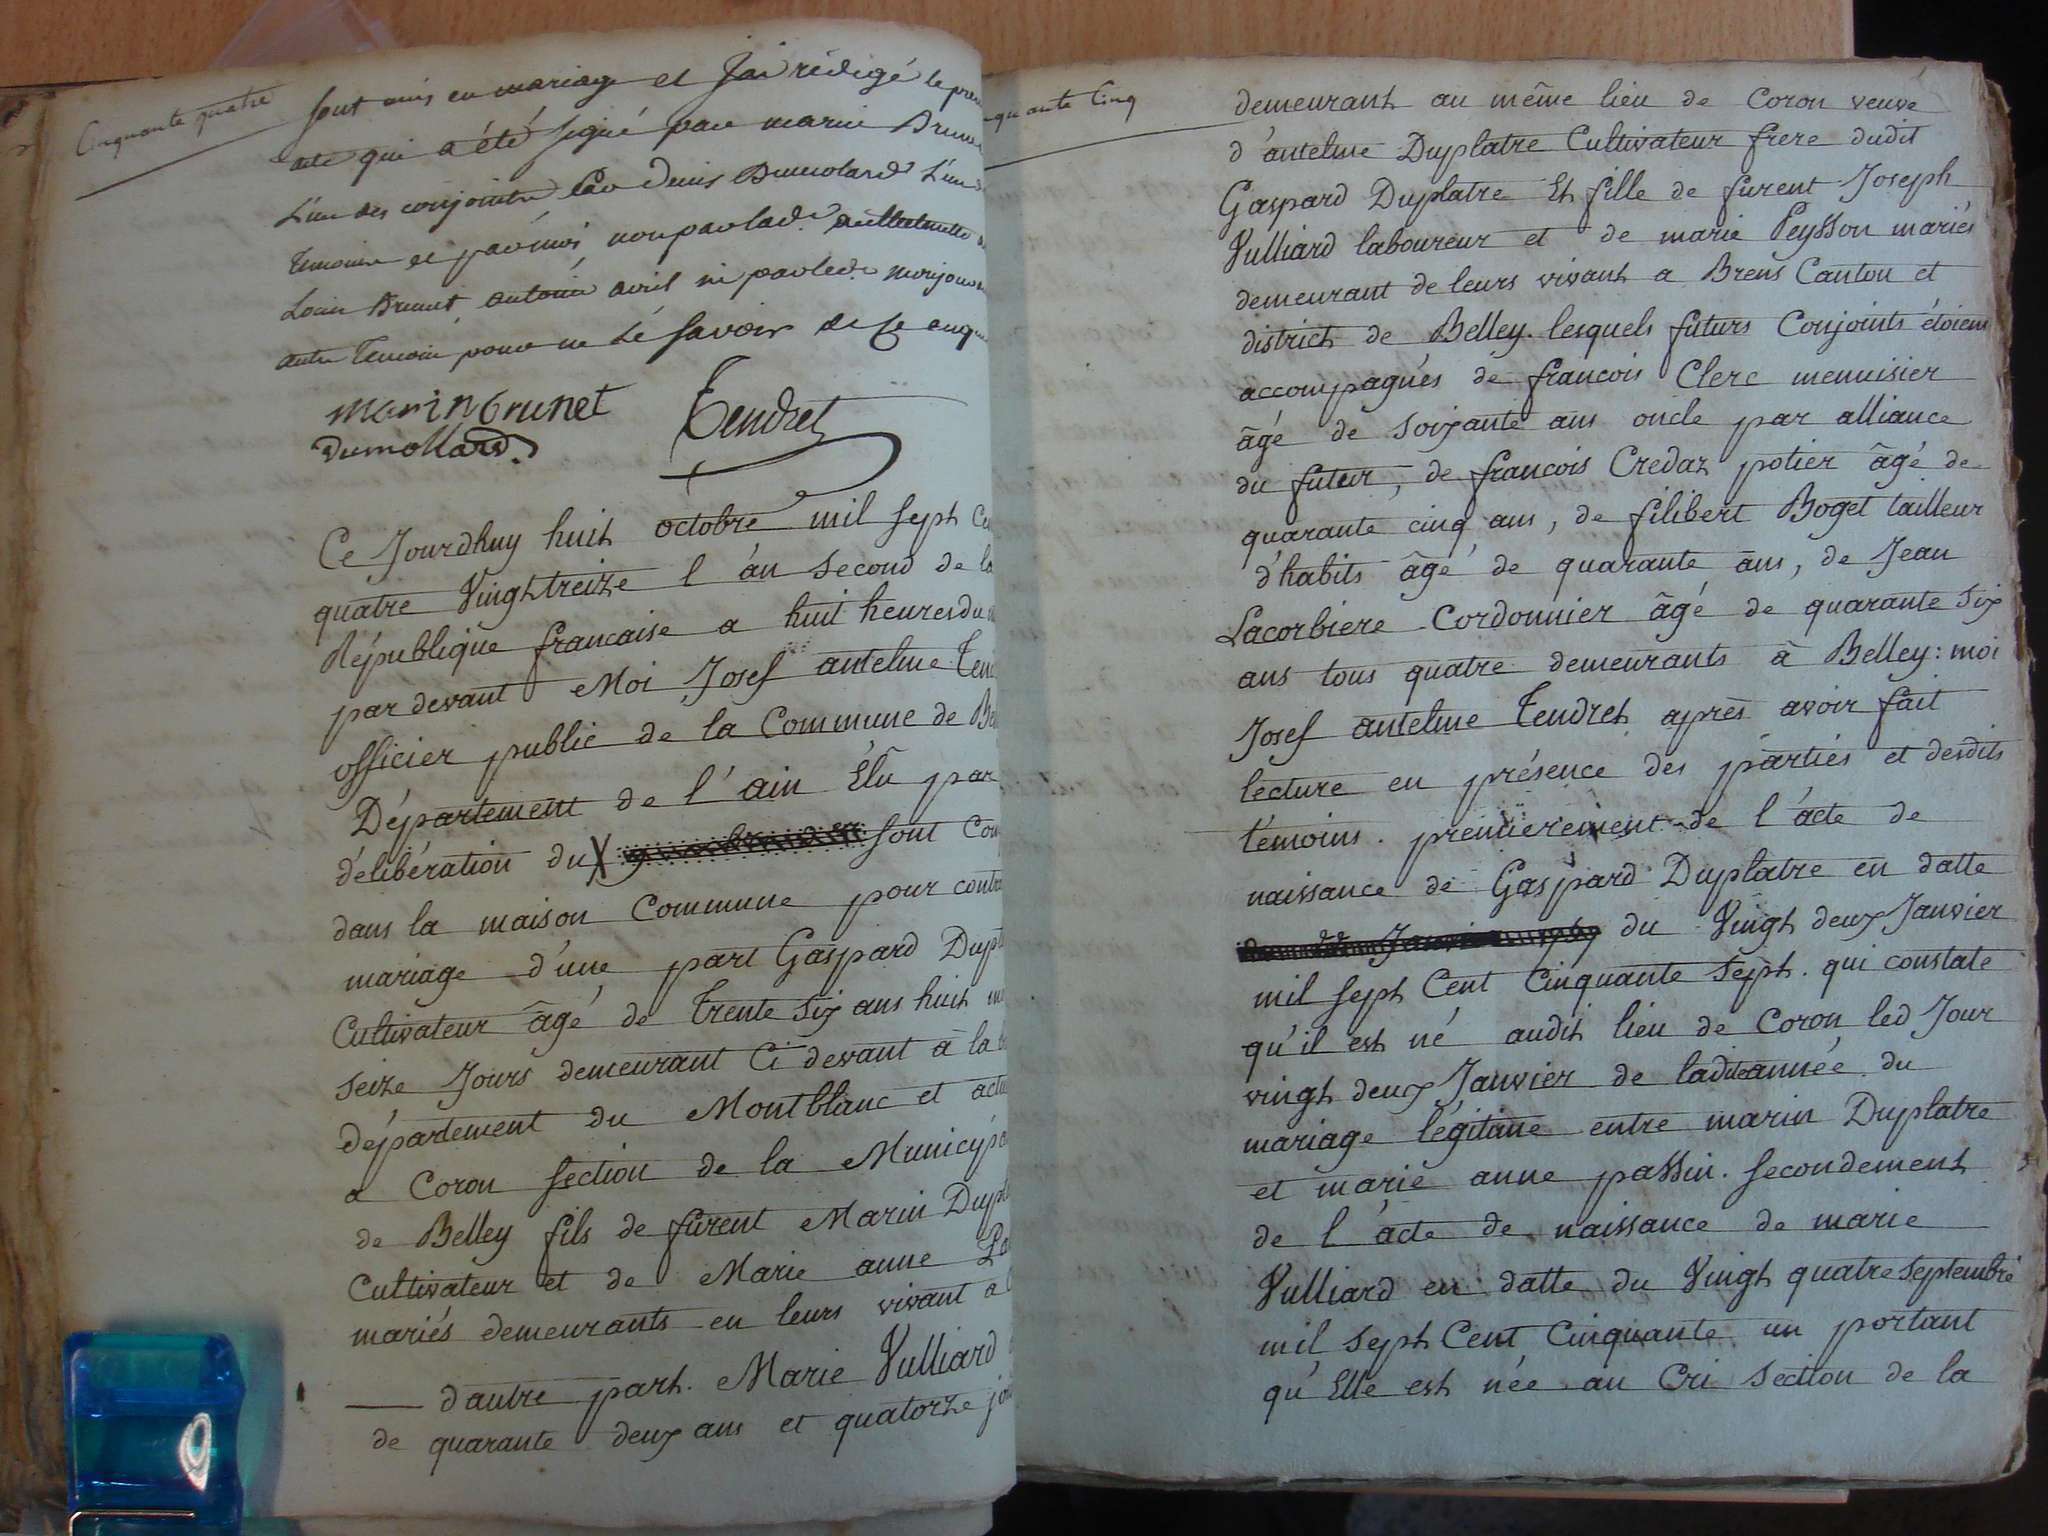 Cinquante quatre
sont unis en mariage et J'ai rédigé le
acte qui a été signé par marin Brunet
L'un des conjoints par Denis Dumolard L'un
témoins et par moi, non par lad.
Louis Brunet antoine avril ni par
autre témoin pour ne le savoir de ce
marin brunet
dumollard.
Tendret
Ce Jourdhuy huit octobre mil sept Ce
quatre Vingt treize l'an second de la
République francaise a huit heures du
par devant Moi Josef antelme Ten
officier public de la Commune de Be
Département de l'ain Élu par
délibération du X sont Com
dans la maison Commune pour contra
mariage d'une part Gaspard Dupl
Cultivateur âgé de Trente Six ans huit m
seize Jours demeurant Ci devant à la
département du Montblanc et actu
a Coron section de la Municipa
de Belley fils de furent Marin Dupla
Cultivateur et de Marie anne Pa
mariés demeurants en leurs vivant a
d'autre part. Marie Vulliard
de quarante deux ans et quatorze jou
quante Cinq
demeurant au même lieu de Coron veuve
d'antelme Duplatre Cultivateur frere dudit
Gaspard Duplatre Et fille de furent Joseph
Vulliard laboureur et de marie Peysson mariés
demeurant de leurs vivant a Brens Canton et
district de Belley. lesquels futurs Conjoints étoient
accompagnés de francois Clerc menuisier
âgé de soixante ans oncle par alliance
du futur, de francois Credaz potier âgé de
quarante cinq ans, de filibert Boget tailleur
d'habits âgé de quarante ans, de Jean
Lacorbiere Cordonnier âgé de quarante six
ans tous quatre demeurants à Belley: moi
Josef antelme Tendret après avoir fait
lecture en présence des parties et desdits
témoins. premierement de l'acte de
naissance de Gaspard Duplatre en datte
du Vingt deux Janvier
mil sept Cent Cinquante Sept. qui constate
qu'il est né audit lieu de Coron led Jour
vingt deux Janvier de ladite année du
mariage légitime entre marin Duplatre
et marie anne passin. secondement
de l'acte de naissance de marie
Vulliard en datte du Vingt quatre Septembre
mil sept Cent Cinquante un portant
qu'Elle est née au Cri section de la